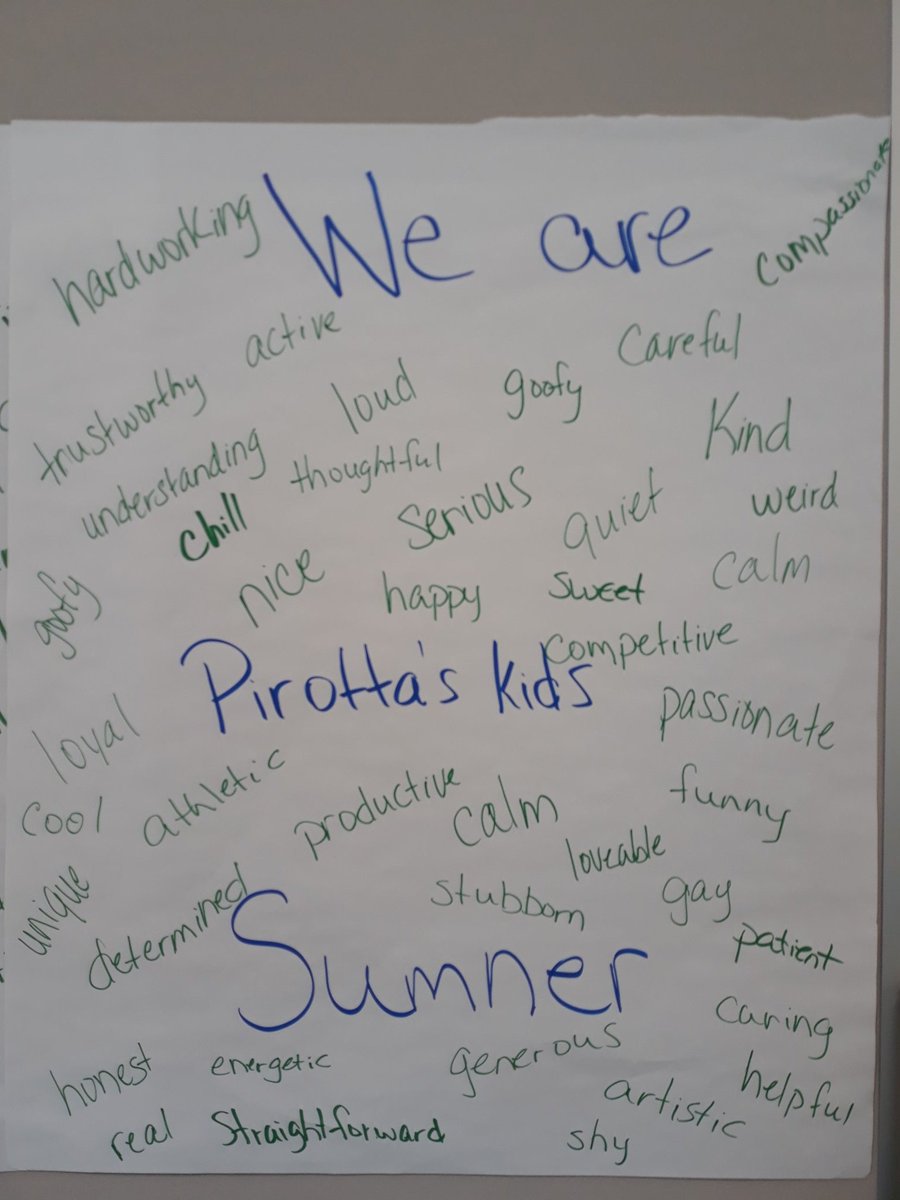 We are
hardworking
compassionate
active
careful
trustworthy
loud
goofy
Kind
understanding
thoughtful
chill
serious
quiet
weird
goofy
nice
happy
sweet
calm
competitive
Pirotta's kids
passionate
loyal
cool
athletic
productive
calm
funny
loveable
unique
determined
stubborn
gay
patient
Sumner
caring
honest
energetic
generous
helpful
artistic
real
Straightforward
shy